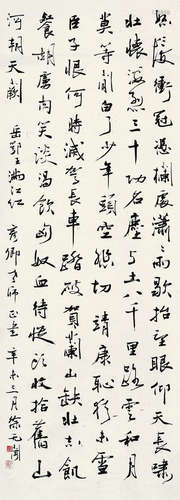 怒髮衝冠憑欄處瀟瀟雨歇抬望眼仰天長嘯
壯懷激烈三十功名塵与土八千里路雲和月
莫等閒白了少年頭空悲切靖康恥猶未雪
臣子恨何時滅駕長車踏破賀蘭山缺壯志飢
餐胡虜肉笑談渴飲匈奴血待從頭收拾舊山
河朝天闕 岳鄂王滿江紅 彥卿 師正 辛未三月徐无聞